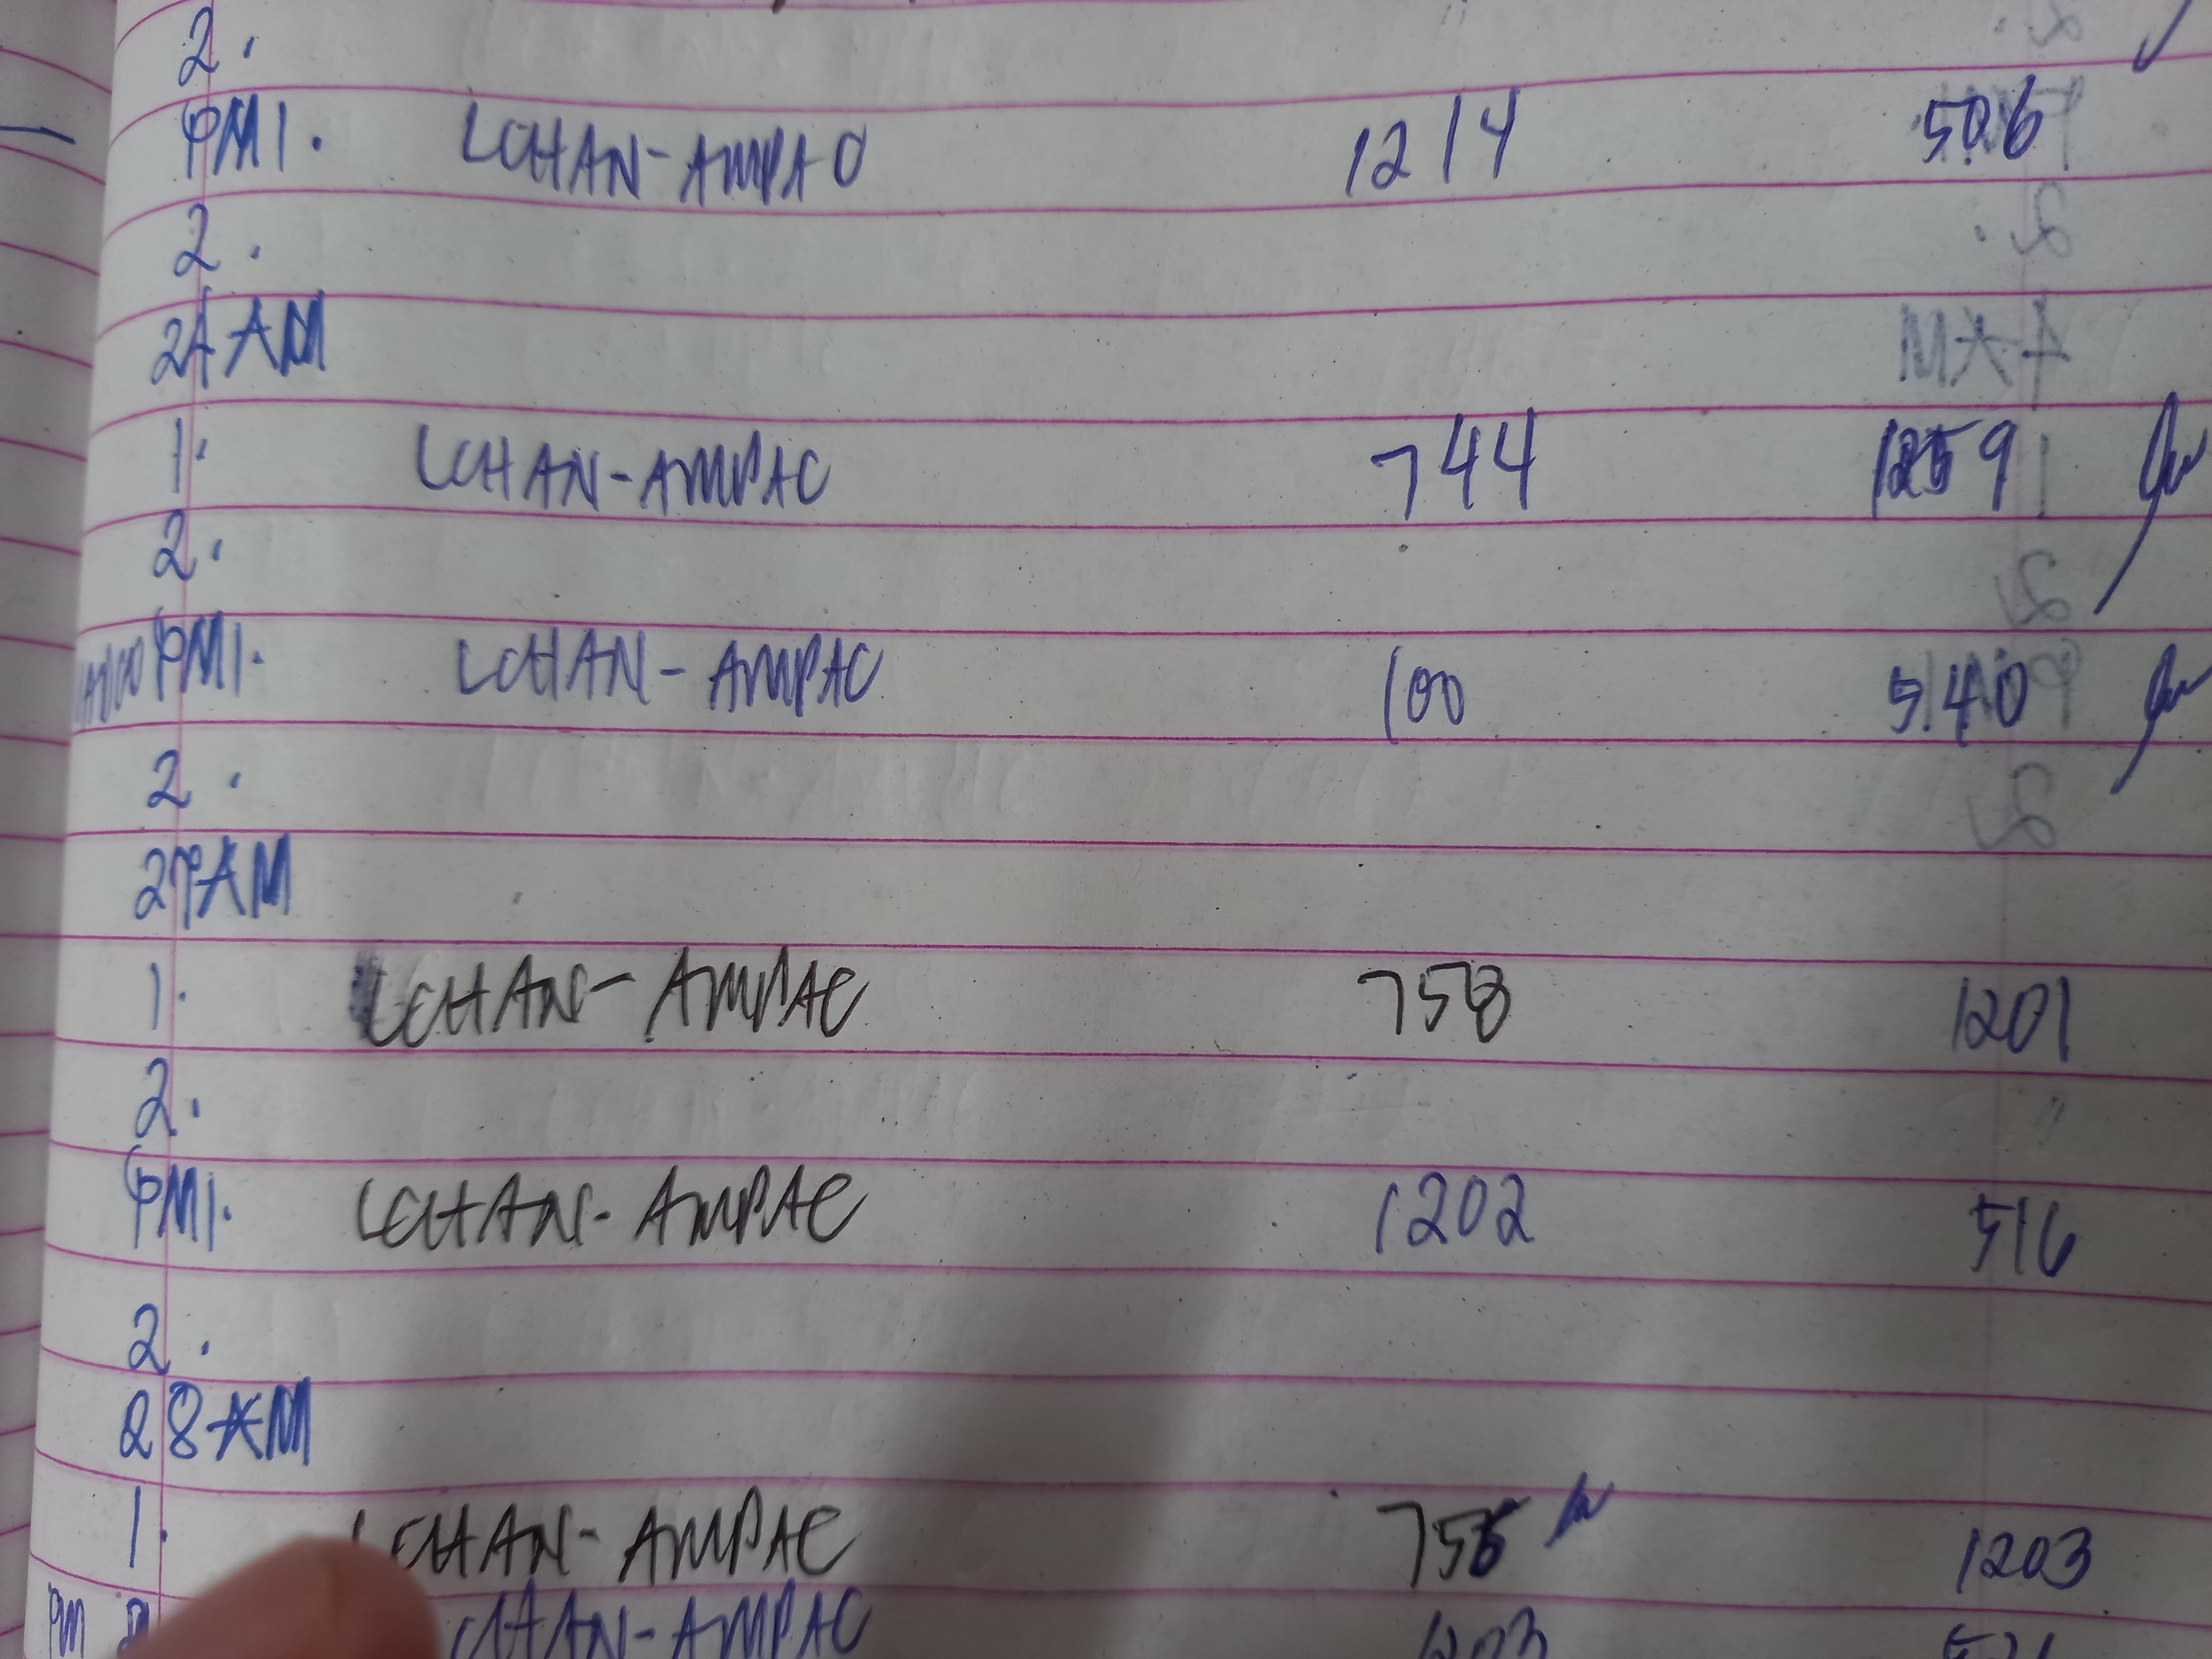 2.
PM 1. LCHAN-AMPAC 1214 506
2.
24 AM
1. LCHAN-AMPAC 744 1259
2.
PM 1. LCHAN-AMPAC 100 5:40
2.
27 AM
1. LCHAN-AMPAC 758 1201
2.
PM 1. LCHAN-AMPAC 1202 516
2.
28 AM
1. LCHAN-AMPAC 755 1203
PM LCHAN-AMPAC 1203